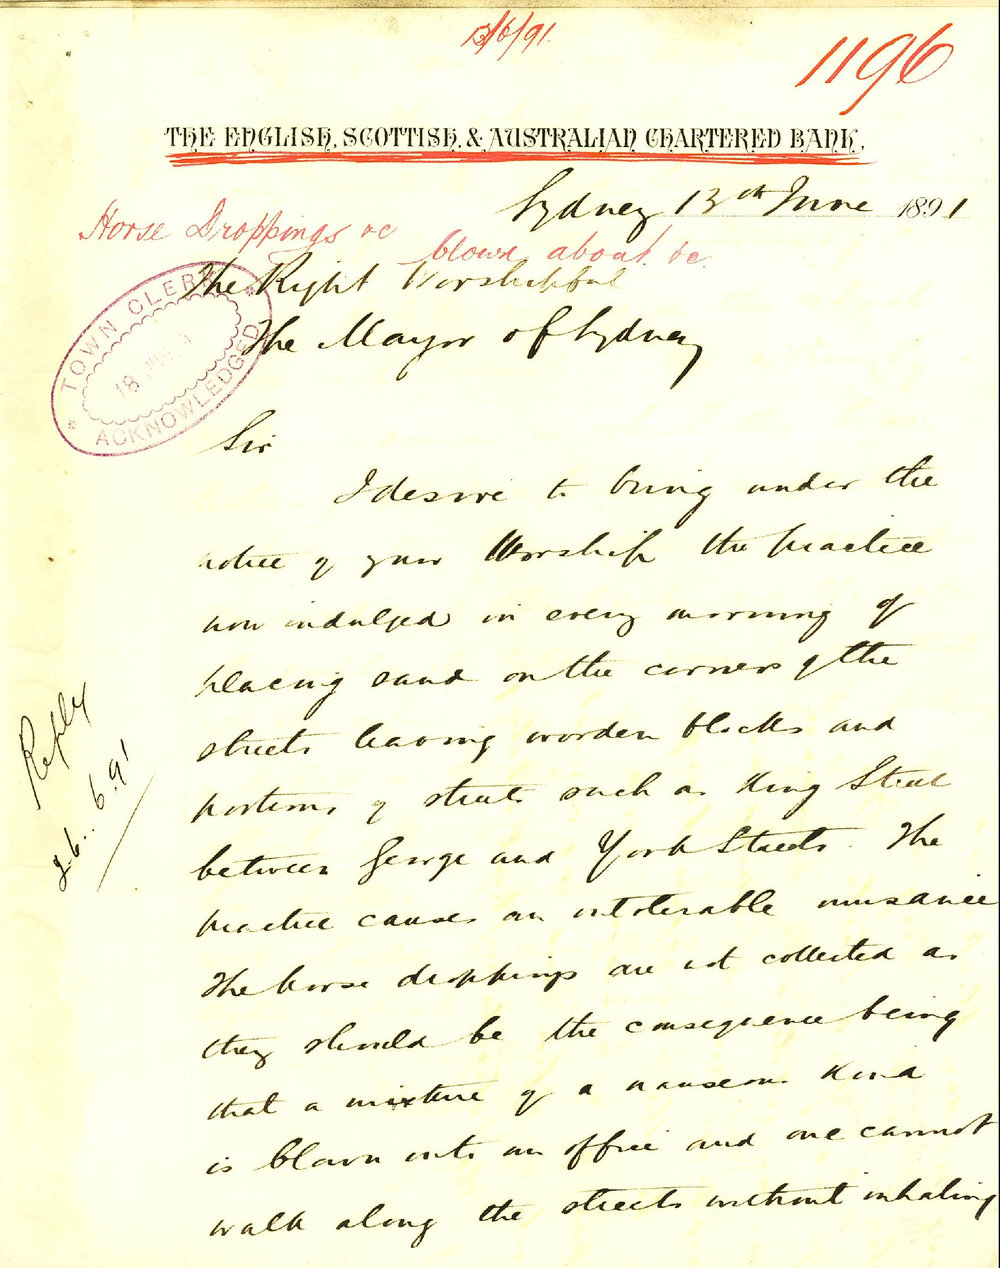 13/6/91
1196
THE ENGLISH, SCOTTISH, & AUSTRALIAN CHARTERED BANK,
Sydney 13th June 1891
Horse Droppings &c
blown about &c.
The Right Worshipful
The Mayor of Sydney
TOWN CLERK
18
ACKNOWLEDGED
Sir
I desire to bring under the
notice of your Worship the practice
now indulged in every morning of
placing sand on the corners of the
streets having wooden blocks and
portions of streets such as King Street
between George and York Streets. The
practice causes an intolerable nuisance
The horse droppings are not collected as
they should be the consequence being
that a mixture of a nauseous kind
is blown into an office and one cannot
walk along the streets without inhaling
Reply
26.6.91